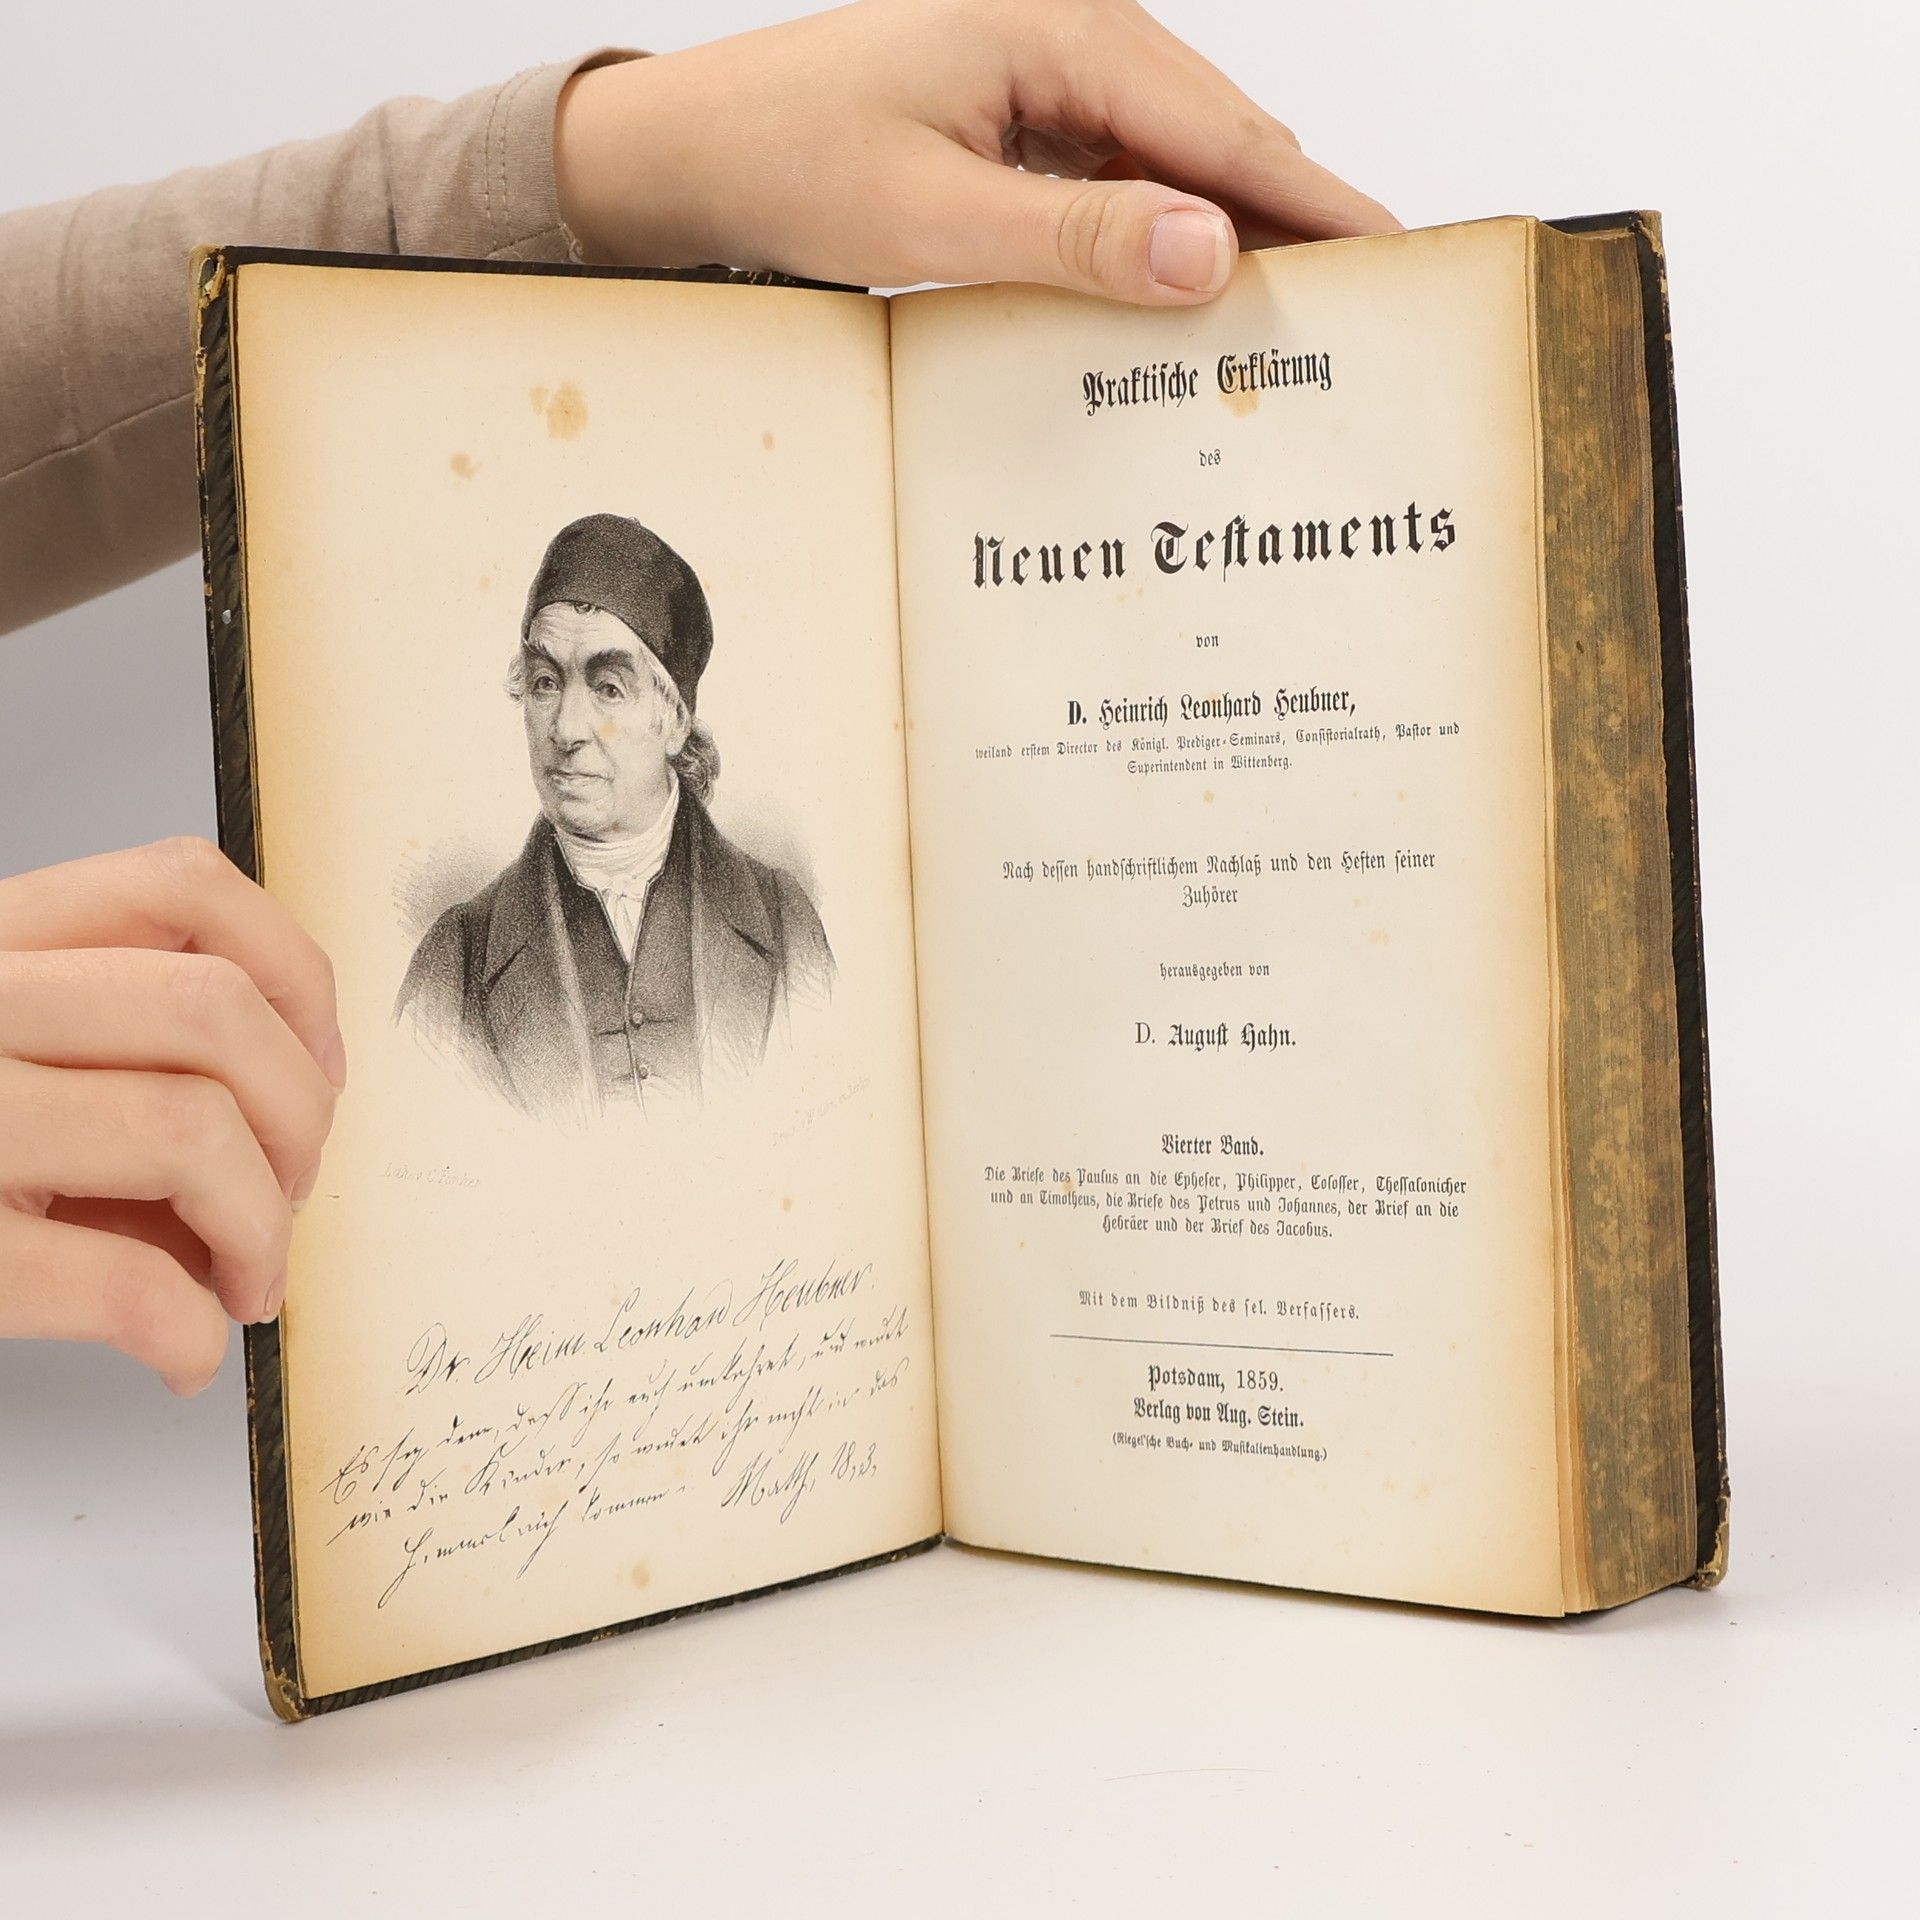 Dr. Heinr. Leonhard Heubner.
Es sey denn, daß ihr euch umkehret, und werdet
wie die Kinder, so werdet ihr nicht in das
Himmelreich kommen. Matth, 18,3,
Praktische Erklärung
des
Neuen Testaments
von
D. Heinrich Leonhard Heubner,
weiland erstem Director des Königl. Prediger-Seminars, Consistorialrath, Pastor und
Superintendent in Wittenberg.
Nach dessen handschriftlichem Nachlaß und den Heften seiner
Zuhörer
herausgegeben von
D. August Hahn.
Vierter Band.
Die Briefe des Paulus an die Epheser, Philipper, Colosser, Thessalonicher
und an Timotheus, die Briefe des Petrus und Johannes, der Brief an die
Hebräer und der Brief des Jacobus.
Mit dem Bildniß des sel. Verfassers.
Potsdam, 1859.
Verlag von Aug. Stein.
(Riegel'sche Buch- und Musikalienhandlung.)